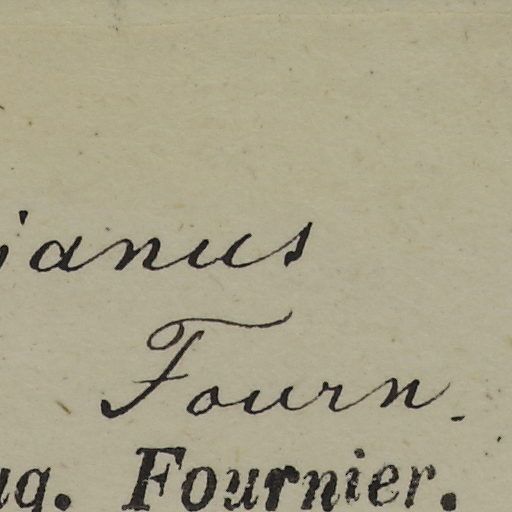 ianus
Fourn.
ug. Fournier.